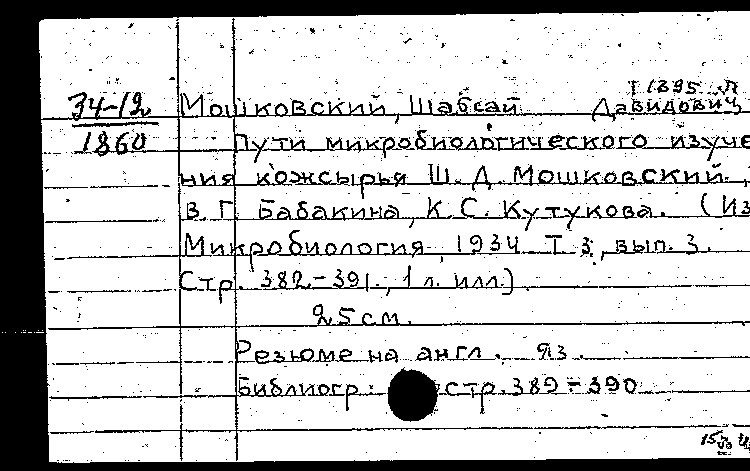 34-12
1860
Мошковский, Шабсай Давидович,
Пути микробиологического изуче
ния кожсырья Ш. Д. Мошковский,
В. Г. Бабакина, К. С. Кутукова. (Из
Микробиология, 1934 Т 3, вып. 3.
Стр. 382-391., 1 л. илл.)
25 см.
Резюме на англ. яз.
Библиогр: стр. 389-390